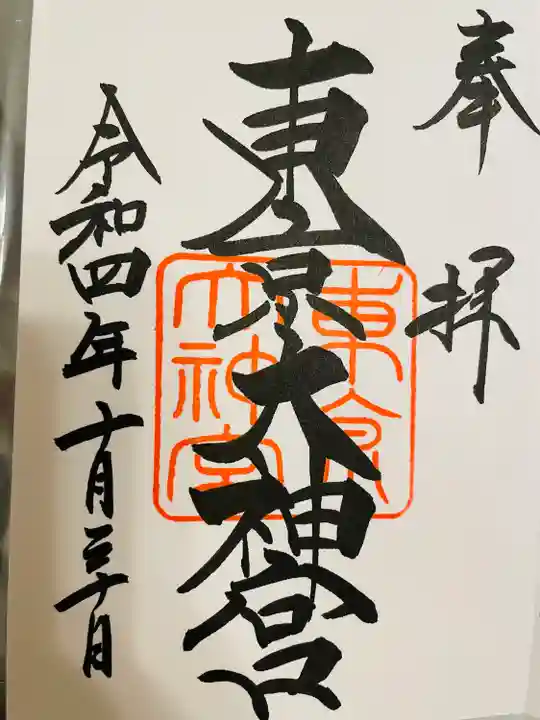 奉拝
東京大神宮
東京
大神宮
令和四年十月三十日